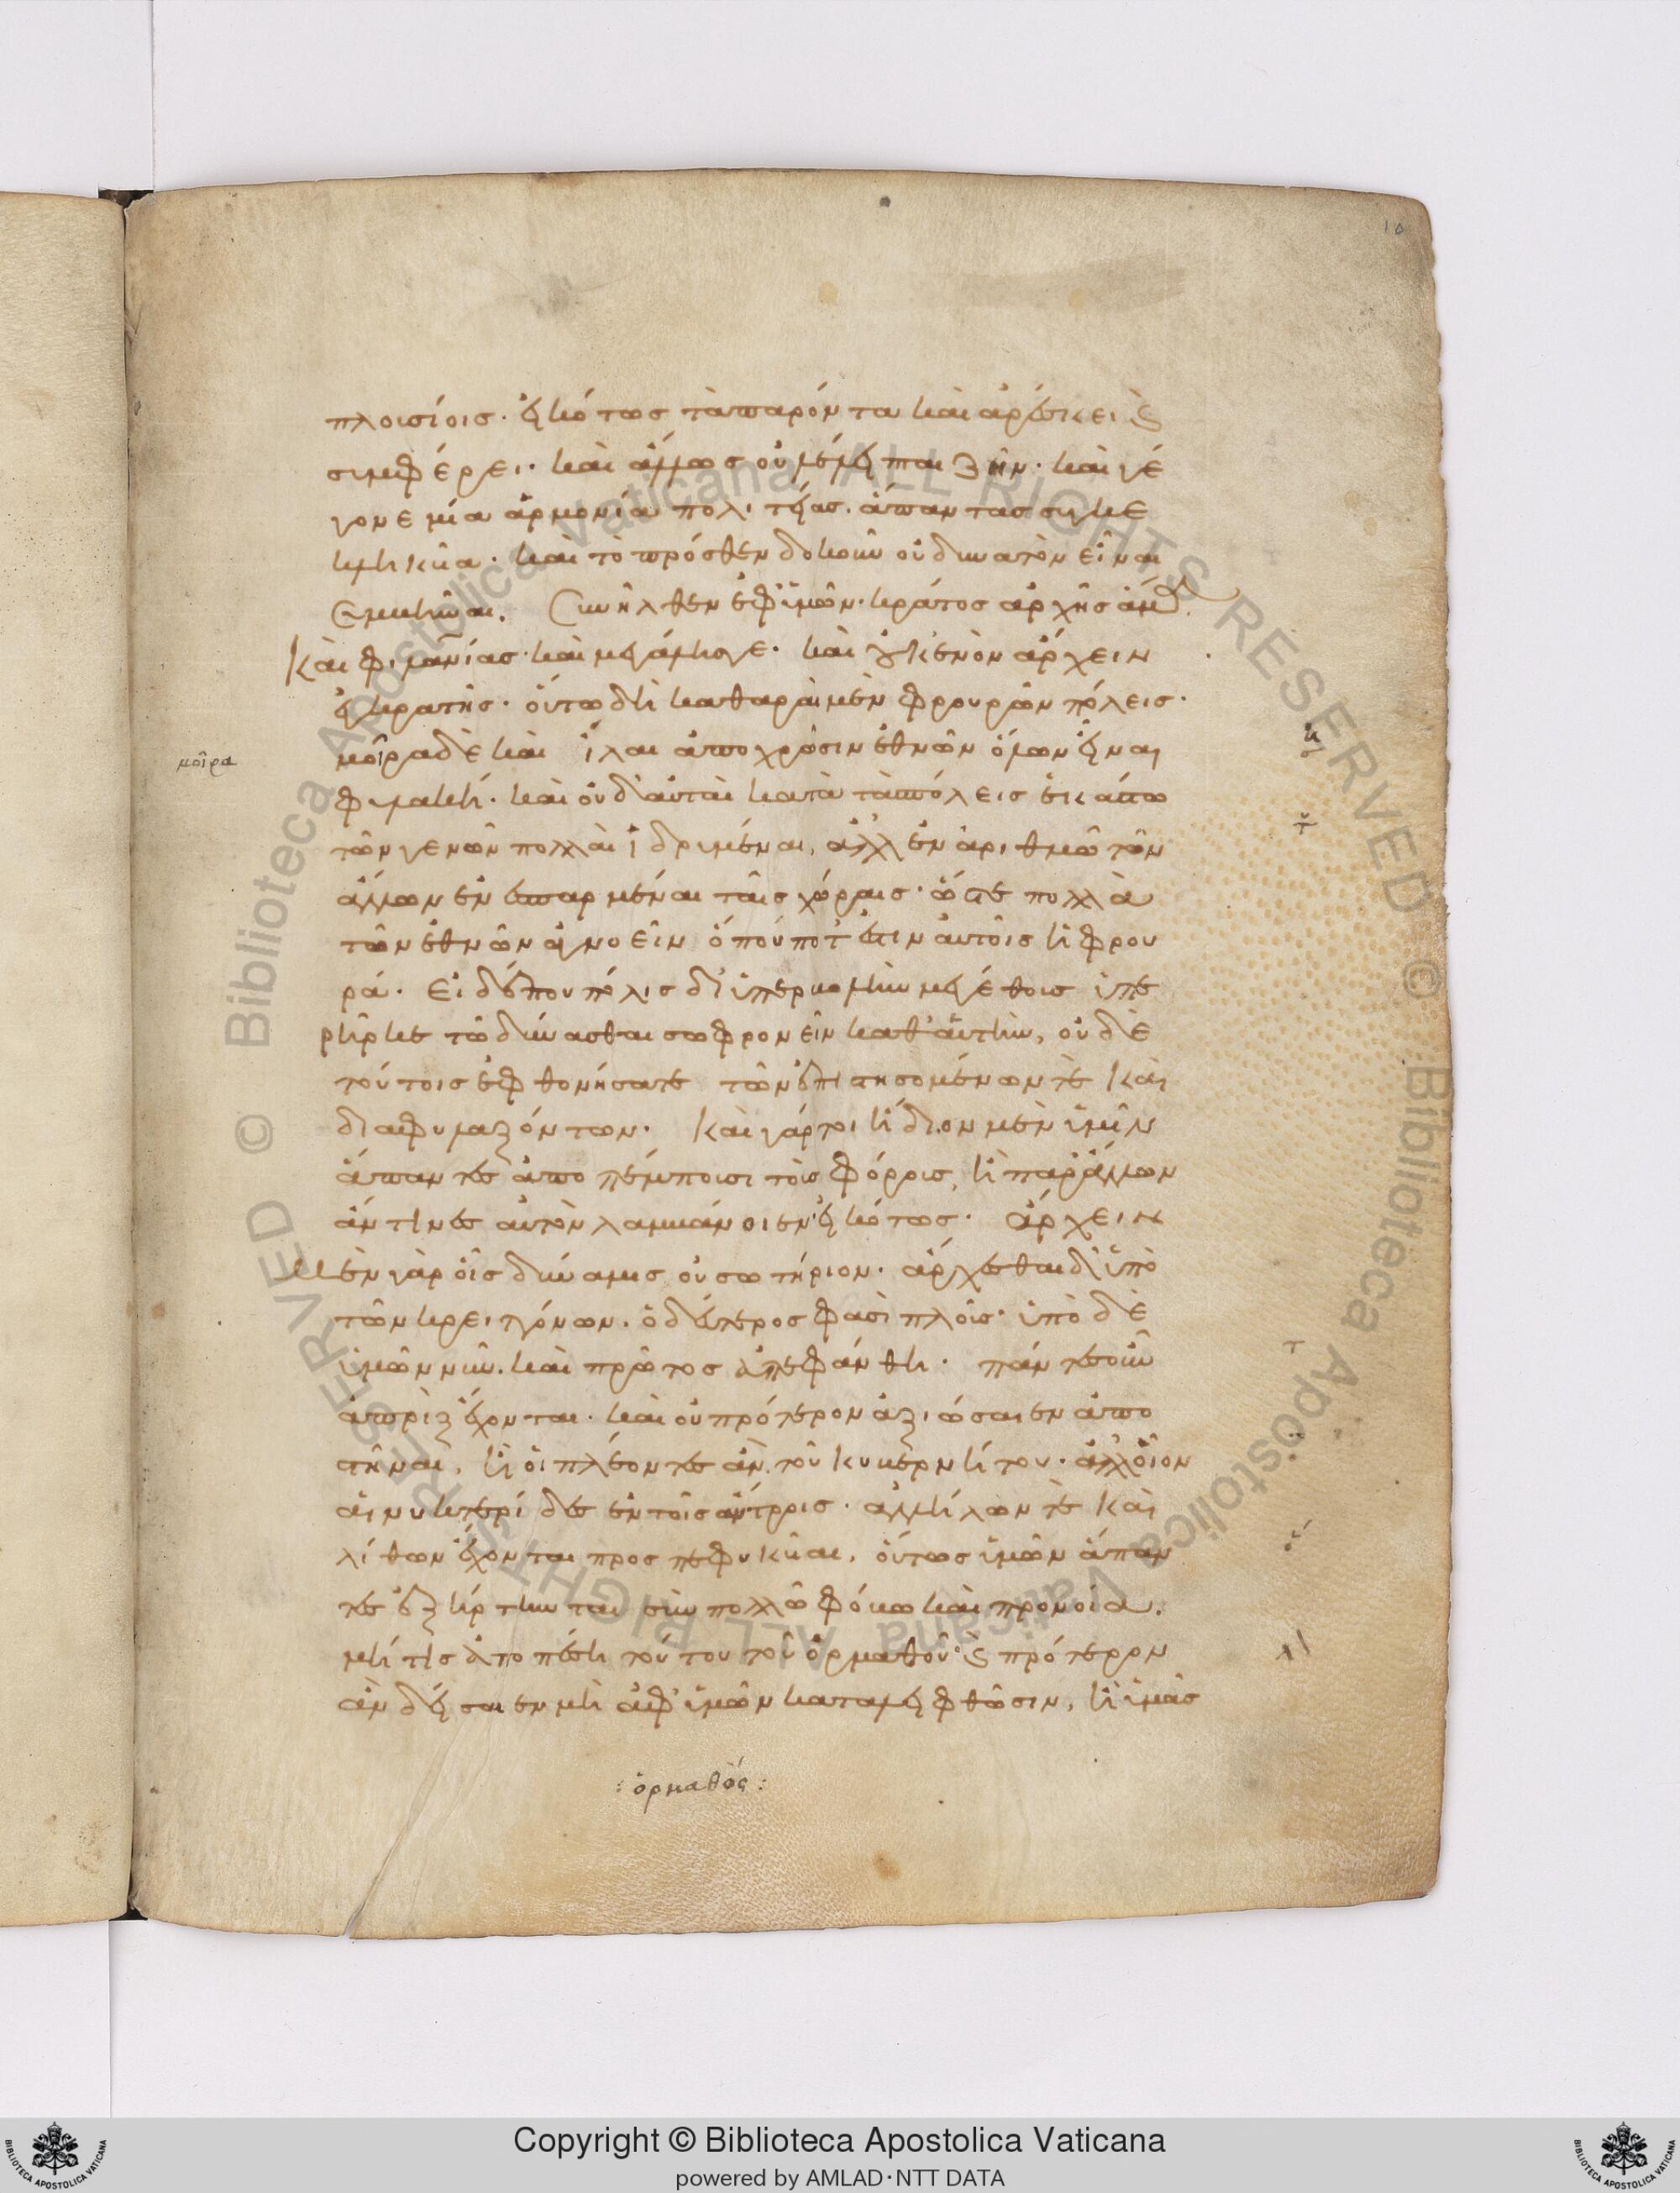 10
πλουσίοις. εἰκότως τὰ παρόντα καὶ ἀρέσκει καὶ
συμφέρει. καὶ ἄλλως οὐ λέλειπται ζῆν. καὶ γέ
γονε μία ἁρμονία πολιτείας ἅπαντας συγκε
κλεικυῖα. καὶ τὸ πρόσθεν δοκοῦν οὐ δυνατὸν εἶναι
συμβῆναι. Συνῆλθεν ἐφ' ὑμῶν. κράτος ἀρχῆς ἅμα
καὶ φιλανίας. καὶ
ἐκρατής. οὕτω δὴ καθαραὶ μὲν φρουρῶν πόλεις.
μοῖρα
μοῖρα δὲ καὶ ἴλαι ἀποχρῶσιν ἐθνῶν ὅλων εἶναι
φυλακή. καὶ οὐδ' αὗται κατὰ τὰς πόλεις ἑκάστω
τῶν γενῶν πολλαὶ ἱδρυμέναι, ἀλλ' ἐν ἀριθμῶ τῶν
ἄλλων ἐνεσπαρμέναι ταῖς χώραις. ὥστε πολλὰ
τῶν ἐθνῶν ἀγνοεῖν ὅπου ποτ' ἐστὶν αὐτοῖς ἡ φρου
ρά. εἰ δέ που πόλις δι' ὑπερβολὴν μεγέθους ὑπε
ρῆρκε τῶ δύνασθαι σωφρονεῖν καθ' αὑτὴν, οὐδὲ
τούτοις ἐφθονήσατε τῶν ἐπιστησομένων τε καὶ
διαφυλαξόντων. καὶ γάρ τοι ἥδιον μὲν ὑμῖν
ἅπαντες ἀποπέμπουσι τοὺς φόρους, ἢ παρ' ἄλλων
ἄν τινες αὐτὸν λαμβάνοιεν εἰκότως. ἄρχειν
μὲν γὰρ οἷς δύναμις οὐ σωτήριον. ἄρχεσθαι δ' ὑπὸ
τῶν κρειττόνων. ὁ δεύτερος φασὶ πλοῦς. ὑπὸ δὲ
ὑμῶν νῦν. καὶ πρῶτος ἀπεφάνθη. πάντες οὖν
ἀπρὶξ ἔχονται. καὶ οὐ πρότερον ἀξιώσαιεν ἀπο
στῆναι, ἢ οἱ πλέοντες ἂν τοῦ κυβερνήτου. ἀλλ' οἷον
αἱ νυκτερίδες ἐν τοῖς ἄντροις. ἀλλήλων τε καὶ
λίθων ἔχονται προσπεφυκυῖαι, οὕτως ὑμῶν ἅπαν
τες ἐξήρτηνται σὺν πολλῶ φόβω καὶ προνοία.
μή τις ἀποπέση τούτου τοῦ ὁρμαθοῦ. καὶ πρότερον
ἂν δείσαιεν μὴ ἀφ' ὑμῶν καταλειφθῶσιν, ἢ ὑμᾶς
: ὁρμαθός :
Copyright © Biblioteca Apostolica Vaticana
powered by AMLAD·NTT DATA